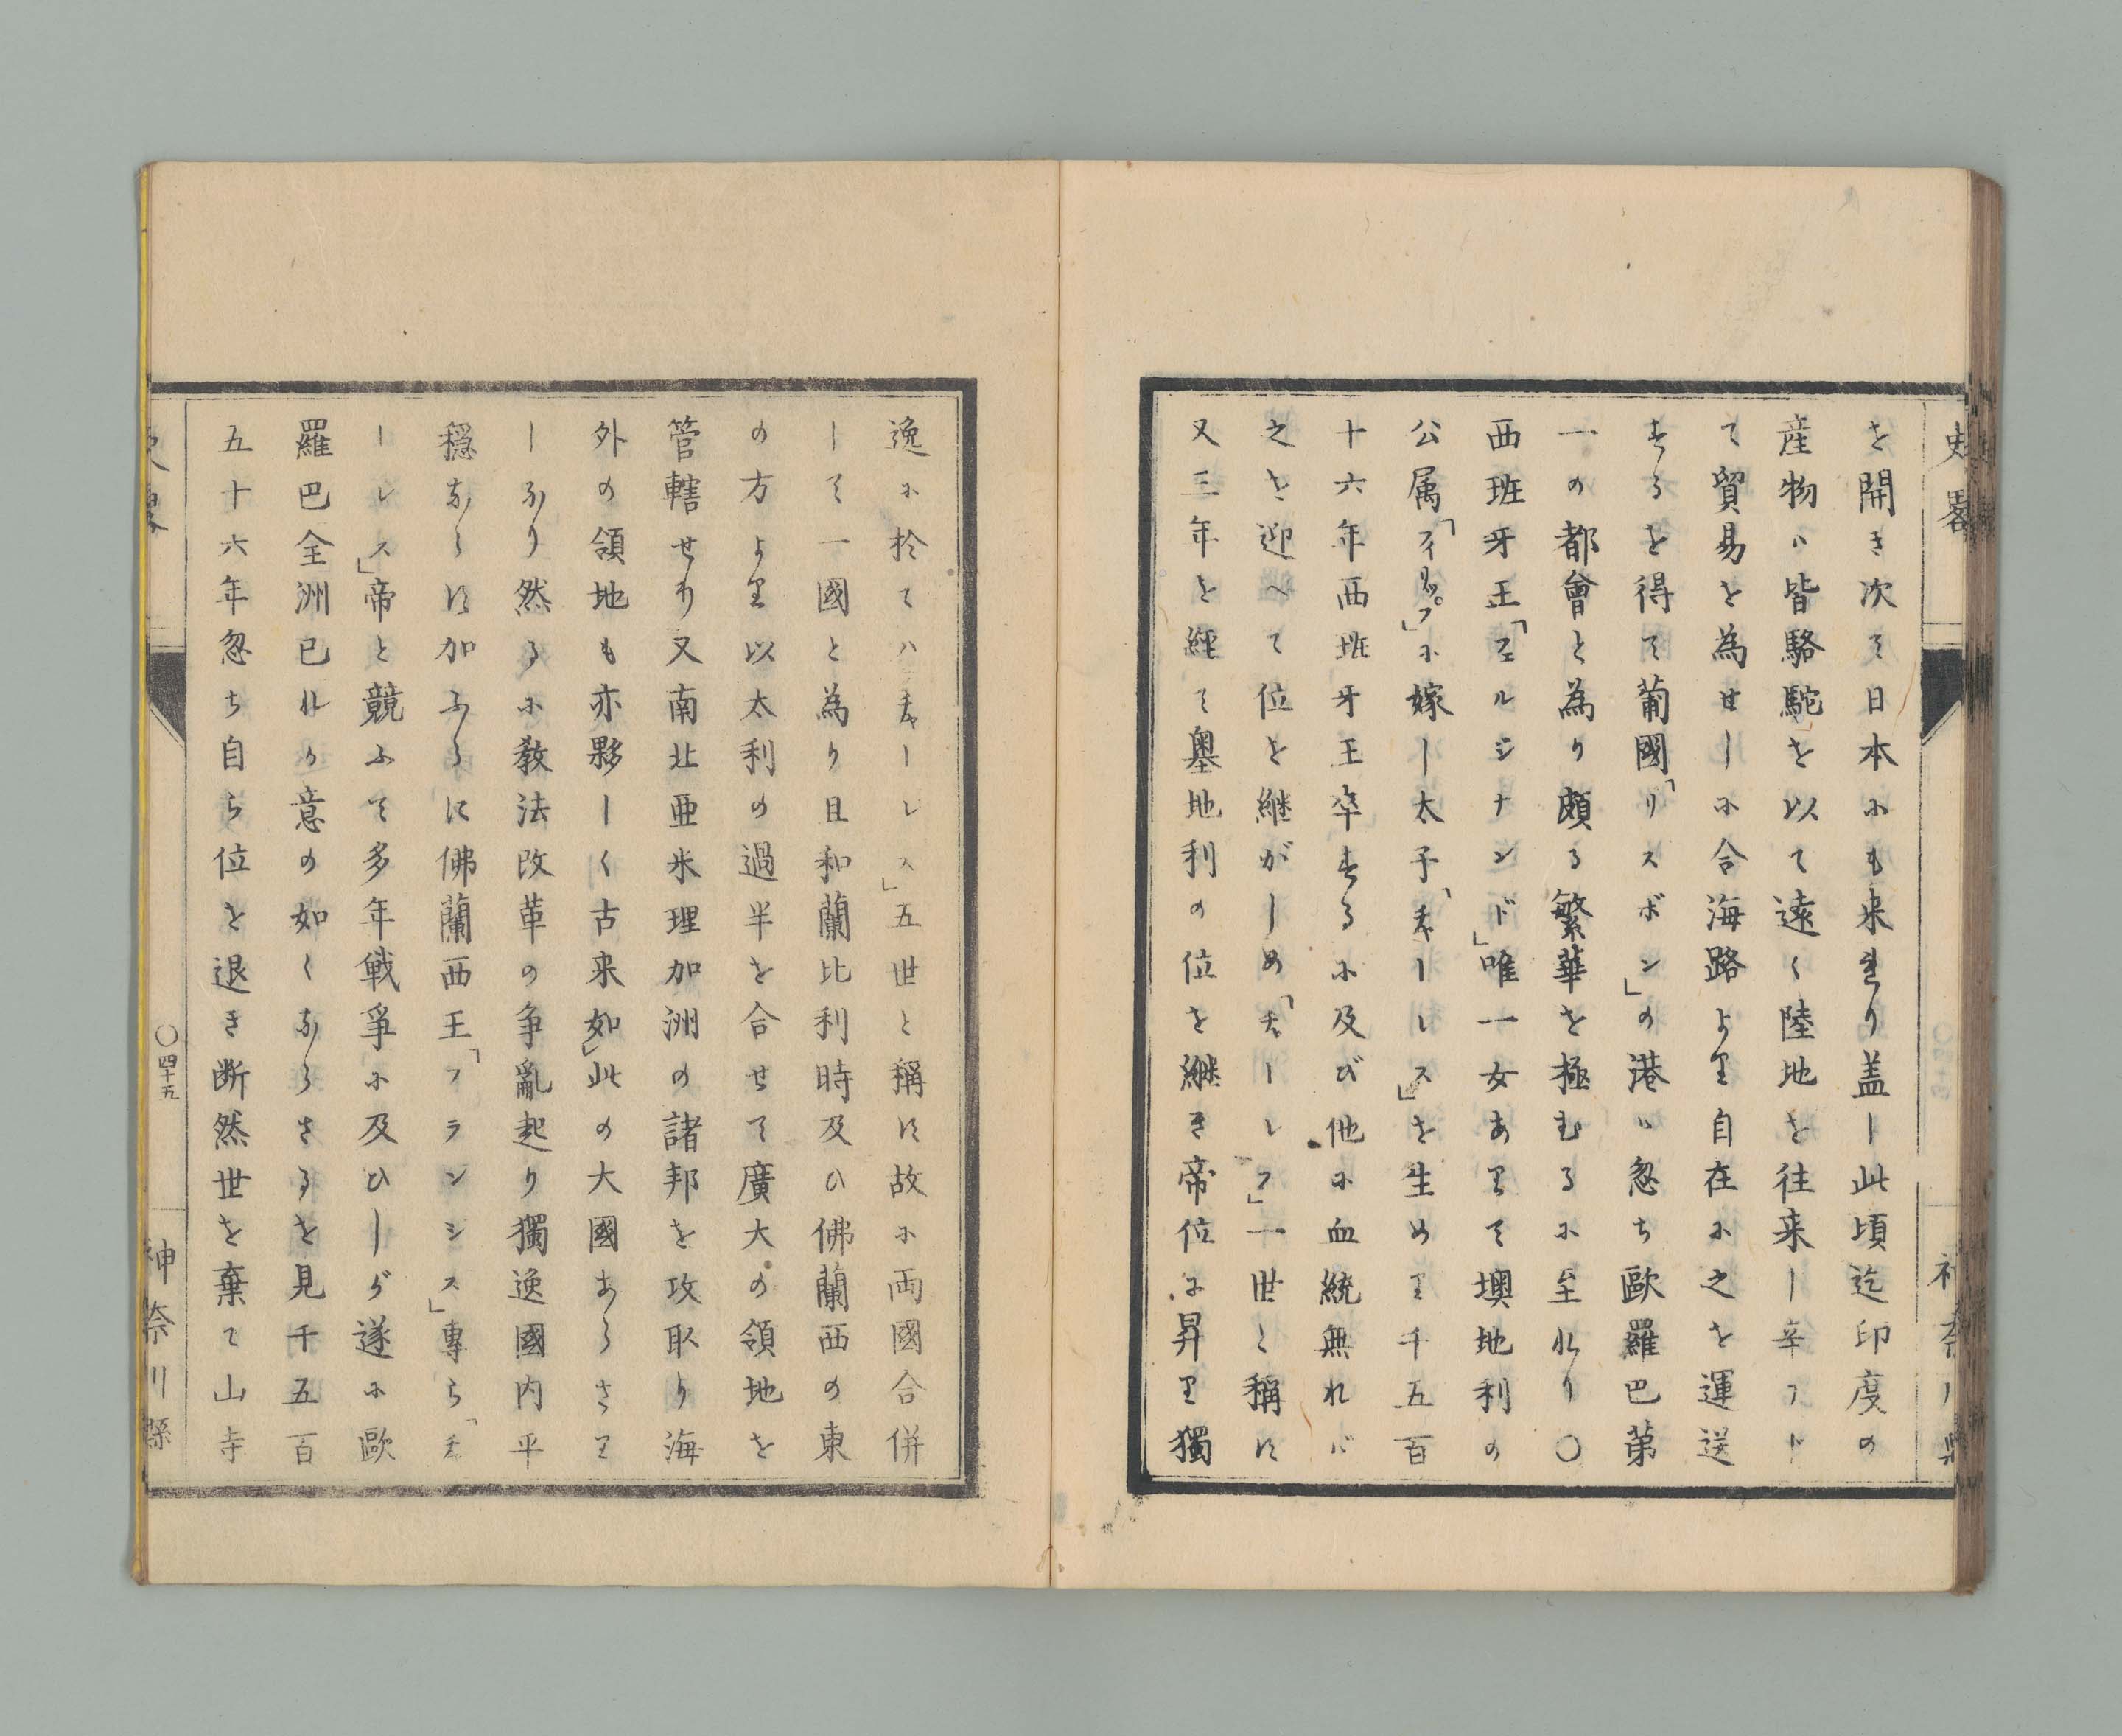 史畧
を開き次て日本にも来れり盖し此頃迄印度の
産物ハ皆駱駝を以て遠く陸地を往来し辛フト
て貿易を為せしに今海路より自在に之を運送
するを得て葡國「リスボン」の港ハ忽ち歐羅巴第
一の都會と為り頗る繁華を極むるに至れり〇
西班牙王「フェルジナンド」唯一女ありて墺地利の
公属「フィリップ」に嫁し太子「チャーレス」を生めり千五百
十六年西班牙王卒するに及び他に血統無れバ
之を迎へて位を継がしめ「チャーレス」一世と稱す
又三年を經て墺地利の位を継き帝位に昇り獨
逸に於てハチャーレス」五世と稱す故に両國合併
して一國と為り且和蘭比利時及ひ佛蘭西の東
の方より以太利の過半を合せて廣大の領地を
管轄せり又南北亜米理加洲の諸邦を攻取り海
外の領地も亦夥しく古来如」此の大國あらさり
しなり然るに教法改革の争亂起り獨逸國内平
穏ならす加ふるに佛蘭西王「フランシス」專ら「チャ
ーレス」帝と競ふて多年戦爭に及ひしが遂に歐
羅巴全洲已れの意の如くならさるを見千五百
五十六年忽ち自ら位を退き断然世を棄て山寺
〇四十五
神奈川縣